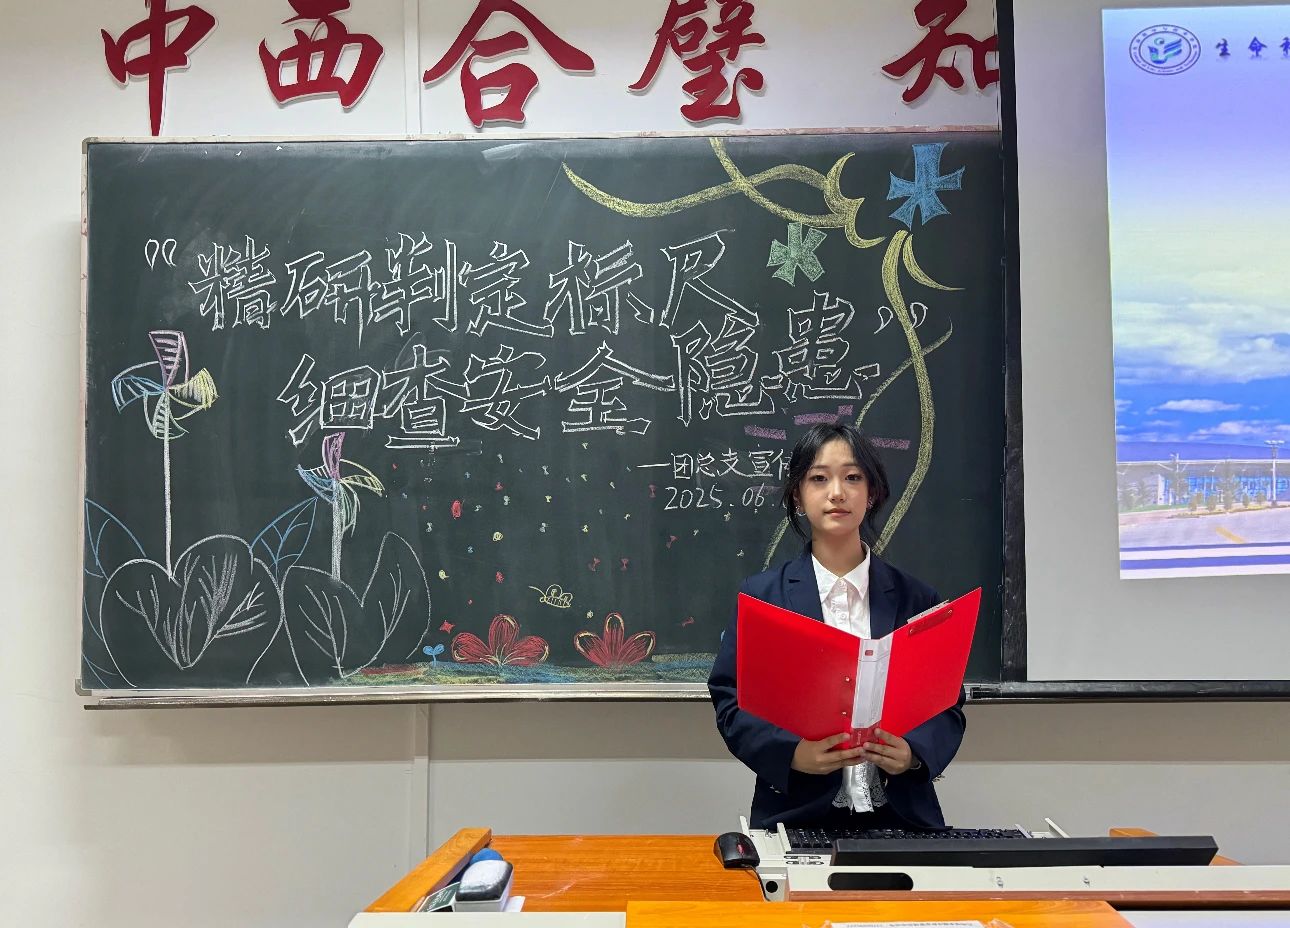 中西合璧 知
"精研判定标尺
细查安全隐患"
一团总支宣传
2025.06.
生命科